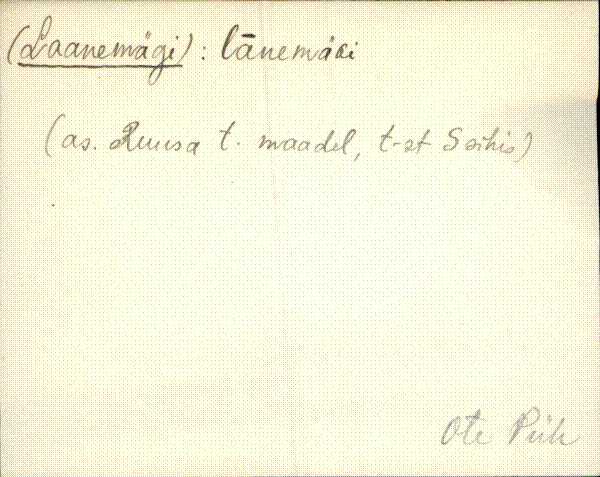 (Laanemägi) : lānemäGi
(as. Ruusa t. maadel, t-st S õhis)
Ote Piih